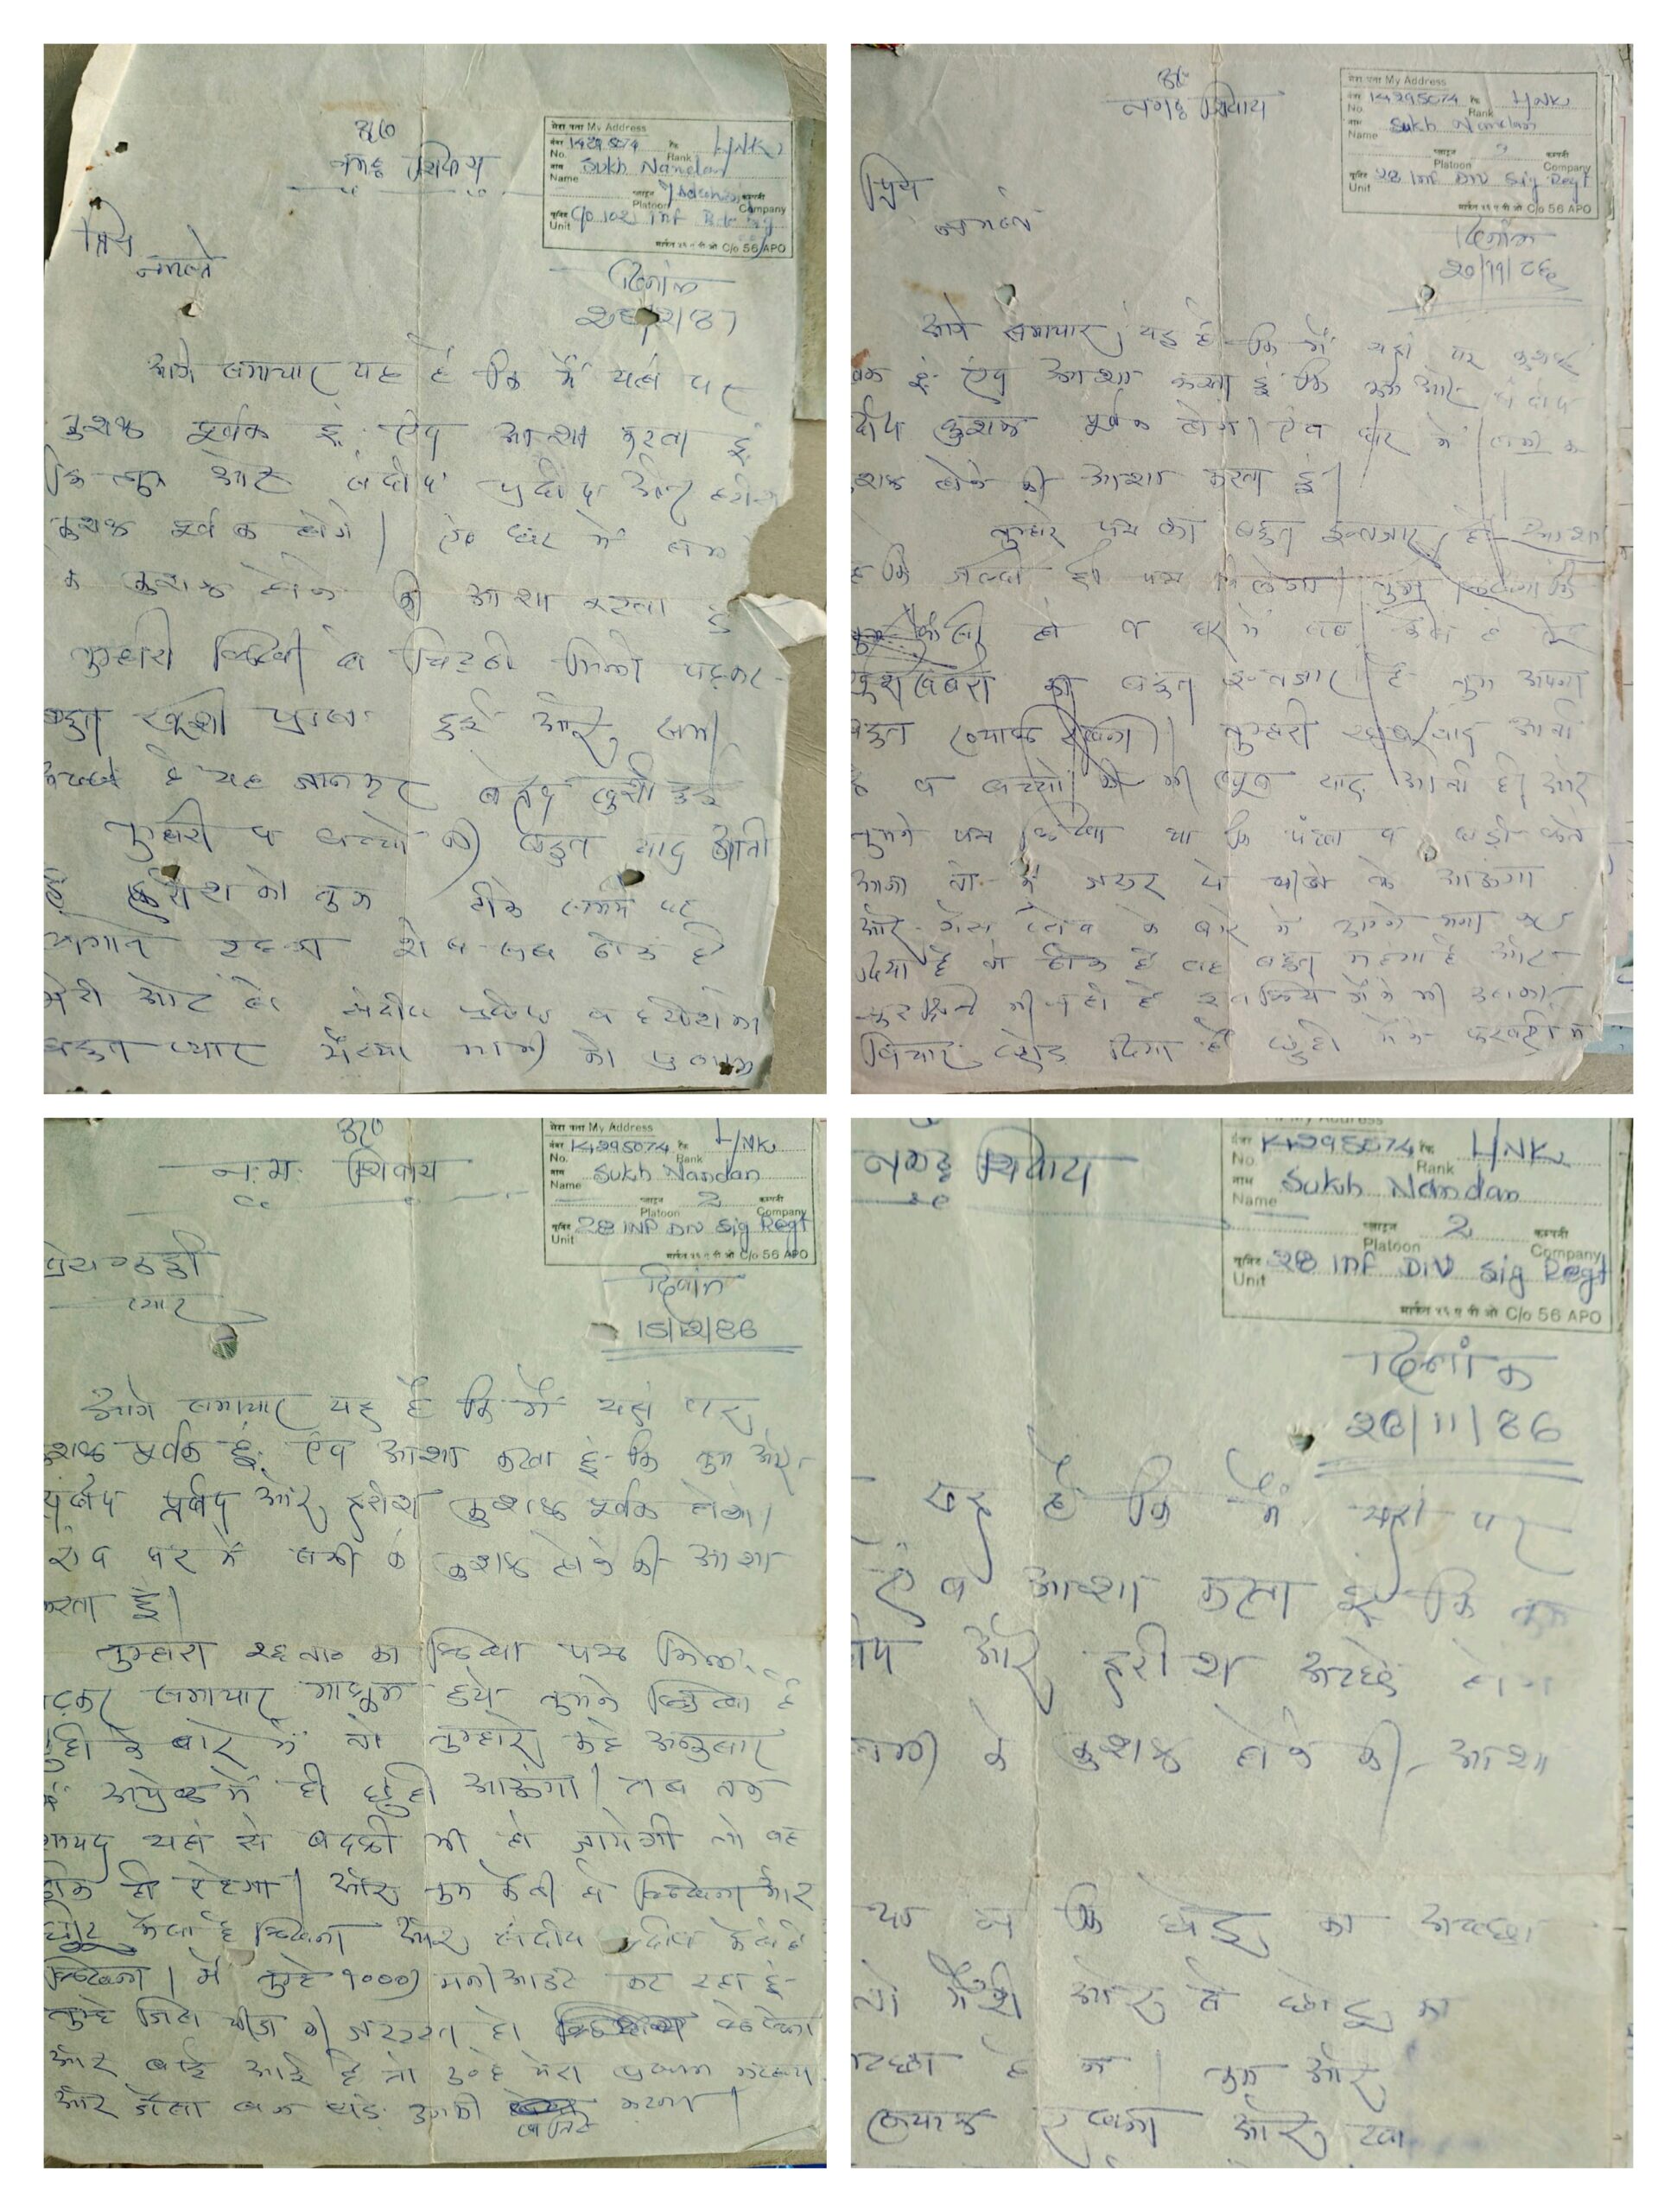 ॐ
नमः शिवाय
मेरा पता My Address
नंबर No. 14295074 रैंक Rank L/NK
नाम Name Sukh Nandan
प्लाटून Platoon कम्पनी Company
यूनिट Unit C/o 102 Inf Sig
मार्फत ५६ ए पी ओ C/o 56 APO
प्रिये
नमस्ते
दिनांक
आगे समाचार यह है कि मैं यहां पर
कुशल पूर्वक हूं एंव आशा करता हूं
कि तुम और संदीप प्रदीप और
कुशल पूर्वक होंगे। एंव घर में सभी
के कुशल होने की आशा करता हूं
तुम्हारी लिखी चिट्ठी मिली पढ़कर
बहुत खुशी प्राप्त हुई और सभी
अच्छे है यह जानकर बेहद खुशी हुई
तुम्हारी व बच्चों की बहुत याद आती
है हरीश को तुम ठीक समय पर
लगाते रहना शेष सब ठीक है
मेरी ओर से संदीप प्रदीप व हरीश को
बहुत प्यार भैय्या भाभी को प्रणाम
ॐ
नमः शिवाय
मेरा पता My Address
नंबर No. 14295074 रैंक Rank L/NK
नाम Name Sukh Nandan
प्लाटून Platoon 2 कम्पनी Company
यूनिट Unit 28 Inf DIV Sig Regt
मार्फत ५६ ए पी ओ C/o 56 APO
प्रिये
नमस्ते
दिनांक
२०/११/८६
आगे समाचार यह है कि मैं यहां पर कुशल
हूं एंव आशा करता हूं कि तुम और संदीप
कुशल पूर्वक होंगे। एंव घर में सभी के
कुशल होने की आशा करता हूं।
तुम्हारे पत्र का बहुत इन्तजार है आशा
है कि जल्दी ही पत्र मिलेगा। तुम लिखना कि
कैसी हो व घर में सब कैसे है
खुशखबरी का बहुत इन्तजार है तुम अपना
बहुत ख्याल रखना। तुम्हारी याद आती
है व बच्चों की भी खूब याद आती है और
तुमने पत्र लिखा था कि पंखा व घड़ी लेते
आना तो मैं जरूर ये चीजें ले आऊंगा
और गैस स्टोव के बारे में तुमने मना कर
दिया है तो ठीक है वह बहुत महंगा है और
भी नही है इसलिये मैंने भी उसका
विचार छोड़ दिया है छुट्टी मैंने फरवरी में
ॐ
न.म. शिवाय
मेरा पता My Address
नंबर No. 14295074 रैंक Rank L/NK
नाम Name Sukh Nandan
प्लाटून Platoon 2 कम्पनी Company
यूनिट Unit 28 INF DIV Sig Regt
मार्फत ५६ ए पी ओ C/o 56 APO
प्यार
दिनांक
15/12/86
आगे समाचार यह है कि मैं यहां पर
कुशल पूर्वक हूं एंव आशा करता हूं कि तुम और
संदीप प्रदीप और हरीश कुशल पूर्वक होंगे।
एंव घर में सभी के कुशल होने की आशा
करता हूं।
तुम्हारा २६ ता० का लिखा पत्र मिला
पढ़कर समाचार मालूम हुये तुमने लिखा है
छुट्टी के बारे में तो तुम्हारे कहे अनुसार
मैं अप्रेल में ही छुट्टी आऊंगा। तब तक
शायद यहां से बदली भी हो जायेगी तो वह
ठीक ही रहेगा। और तुम कैसी हो लिखना और
कैसा है लिखना और संदीप प्रदीप कैसे है
लिखना। मैं तुम्हे १०००) मनीआर्डर कर रहा हूं
तुम्हे जिस चीज की जरूरत हो ले लेना
और बाई आई है तो उन्हे मेरा प्रणाम कहना
और जैसा बन पड़े उनकी खातिर करना।
नमः शिवाय
नंबर No. 14295074 रैंक Rank L/NK
नाम Name Sukh Nandan
प्लाटून Platoon 2 कम्पनी Company
यूनिट Unit 28 Inf DIV Sig Regt
मार्फत ५६ ए पी ओ C/o 56 APO
दिनांक
28/11/86
यह है कि मैं यहां पर
एंव आशा करता हूं कि तुम
और हरीश अच्छे होंगे
सभी के कुशल होने की आशा
कि का अच्छा
तो मेरी ओर से
है न। तुम और
ख्याल रखना और